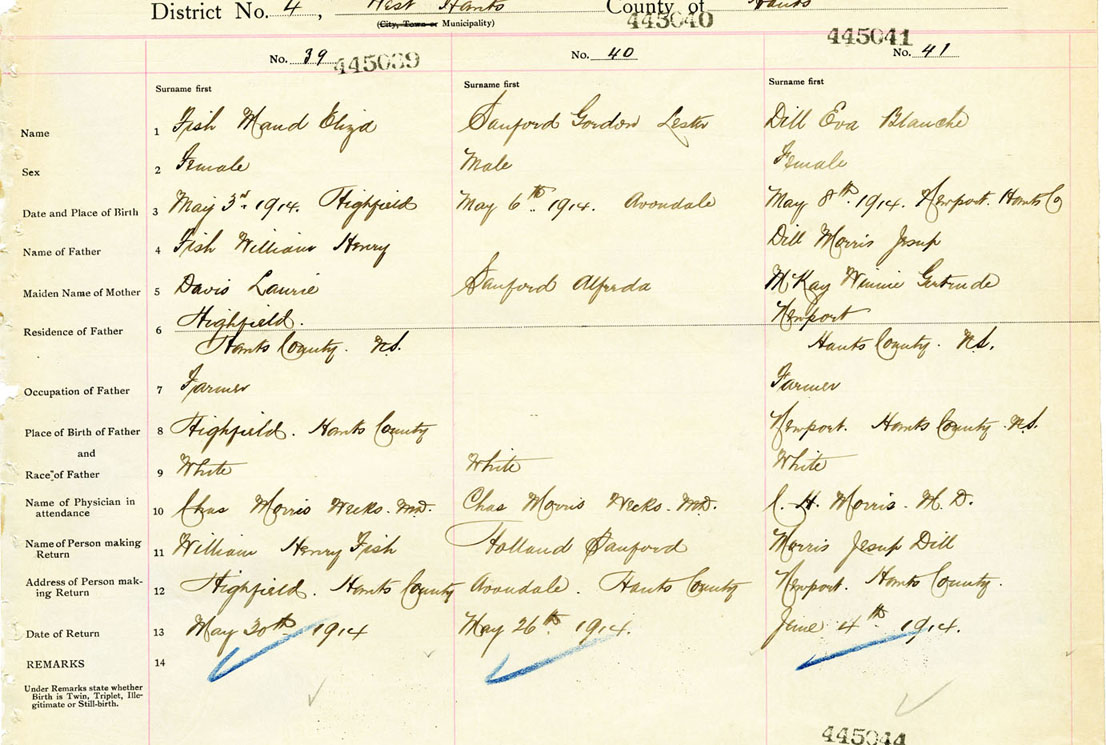 District No. 4, West Hants County of Hants
(City, Town or Municipality)
445040
445041
No. 39 445039 No. 40 No. 41
Surname first Surname first Surname first
Name 1 Fish Maud Eliza Sanford Gordon Lester Dill Eva Blanche
Sex 2 Female Male Female
Date and Place of Birth 3 May 3rd 1914. Highfield May 6th 1914. Avondale May 8th 1914. Newport. Hants Co
Name of Father 4 Fish William Henry Dill Morris Jesup
Maiden Name of Mother 5 Davis Laurie Sanford Alfreda McKay Winnie Gertrude
Residence of Father 6 Highfield. Newport
Hants County. N.S. Hants County. N.S.
Occupation of Father 7 Farmer Farmer
Place of Birth of Father 8 Highfield. Hants County Newport. Hants County N.S.
and
Race of Father 9 White White White
Name of Physician in attendance 10 Chas Morris Weeks. M.D. Chas Morris Weeks. M.D. C. H. Morris. M.D.
Name of Person making Return 11 William Henry Fish Holland Sanford Morris Jesup Dill
Address of Person mak-ing Return 12 Highfield. Hants County Avondale. Hants County Newport. Hants County.
Date of Return 13 May 20th 1914 May 26th 1914. June 4th 1914.
REMARKS 14
Under Remarks state whether
Birth is Twin, Triplet, Ille-
gitimate or Still-birth.
445044